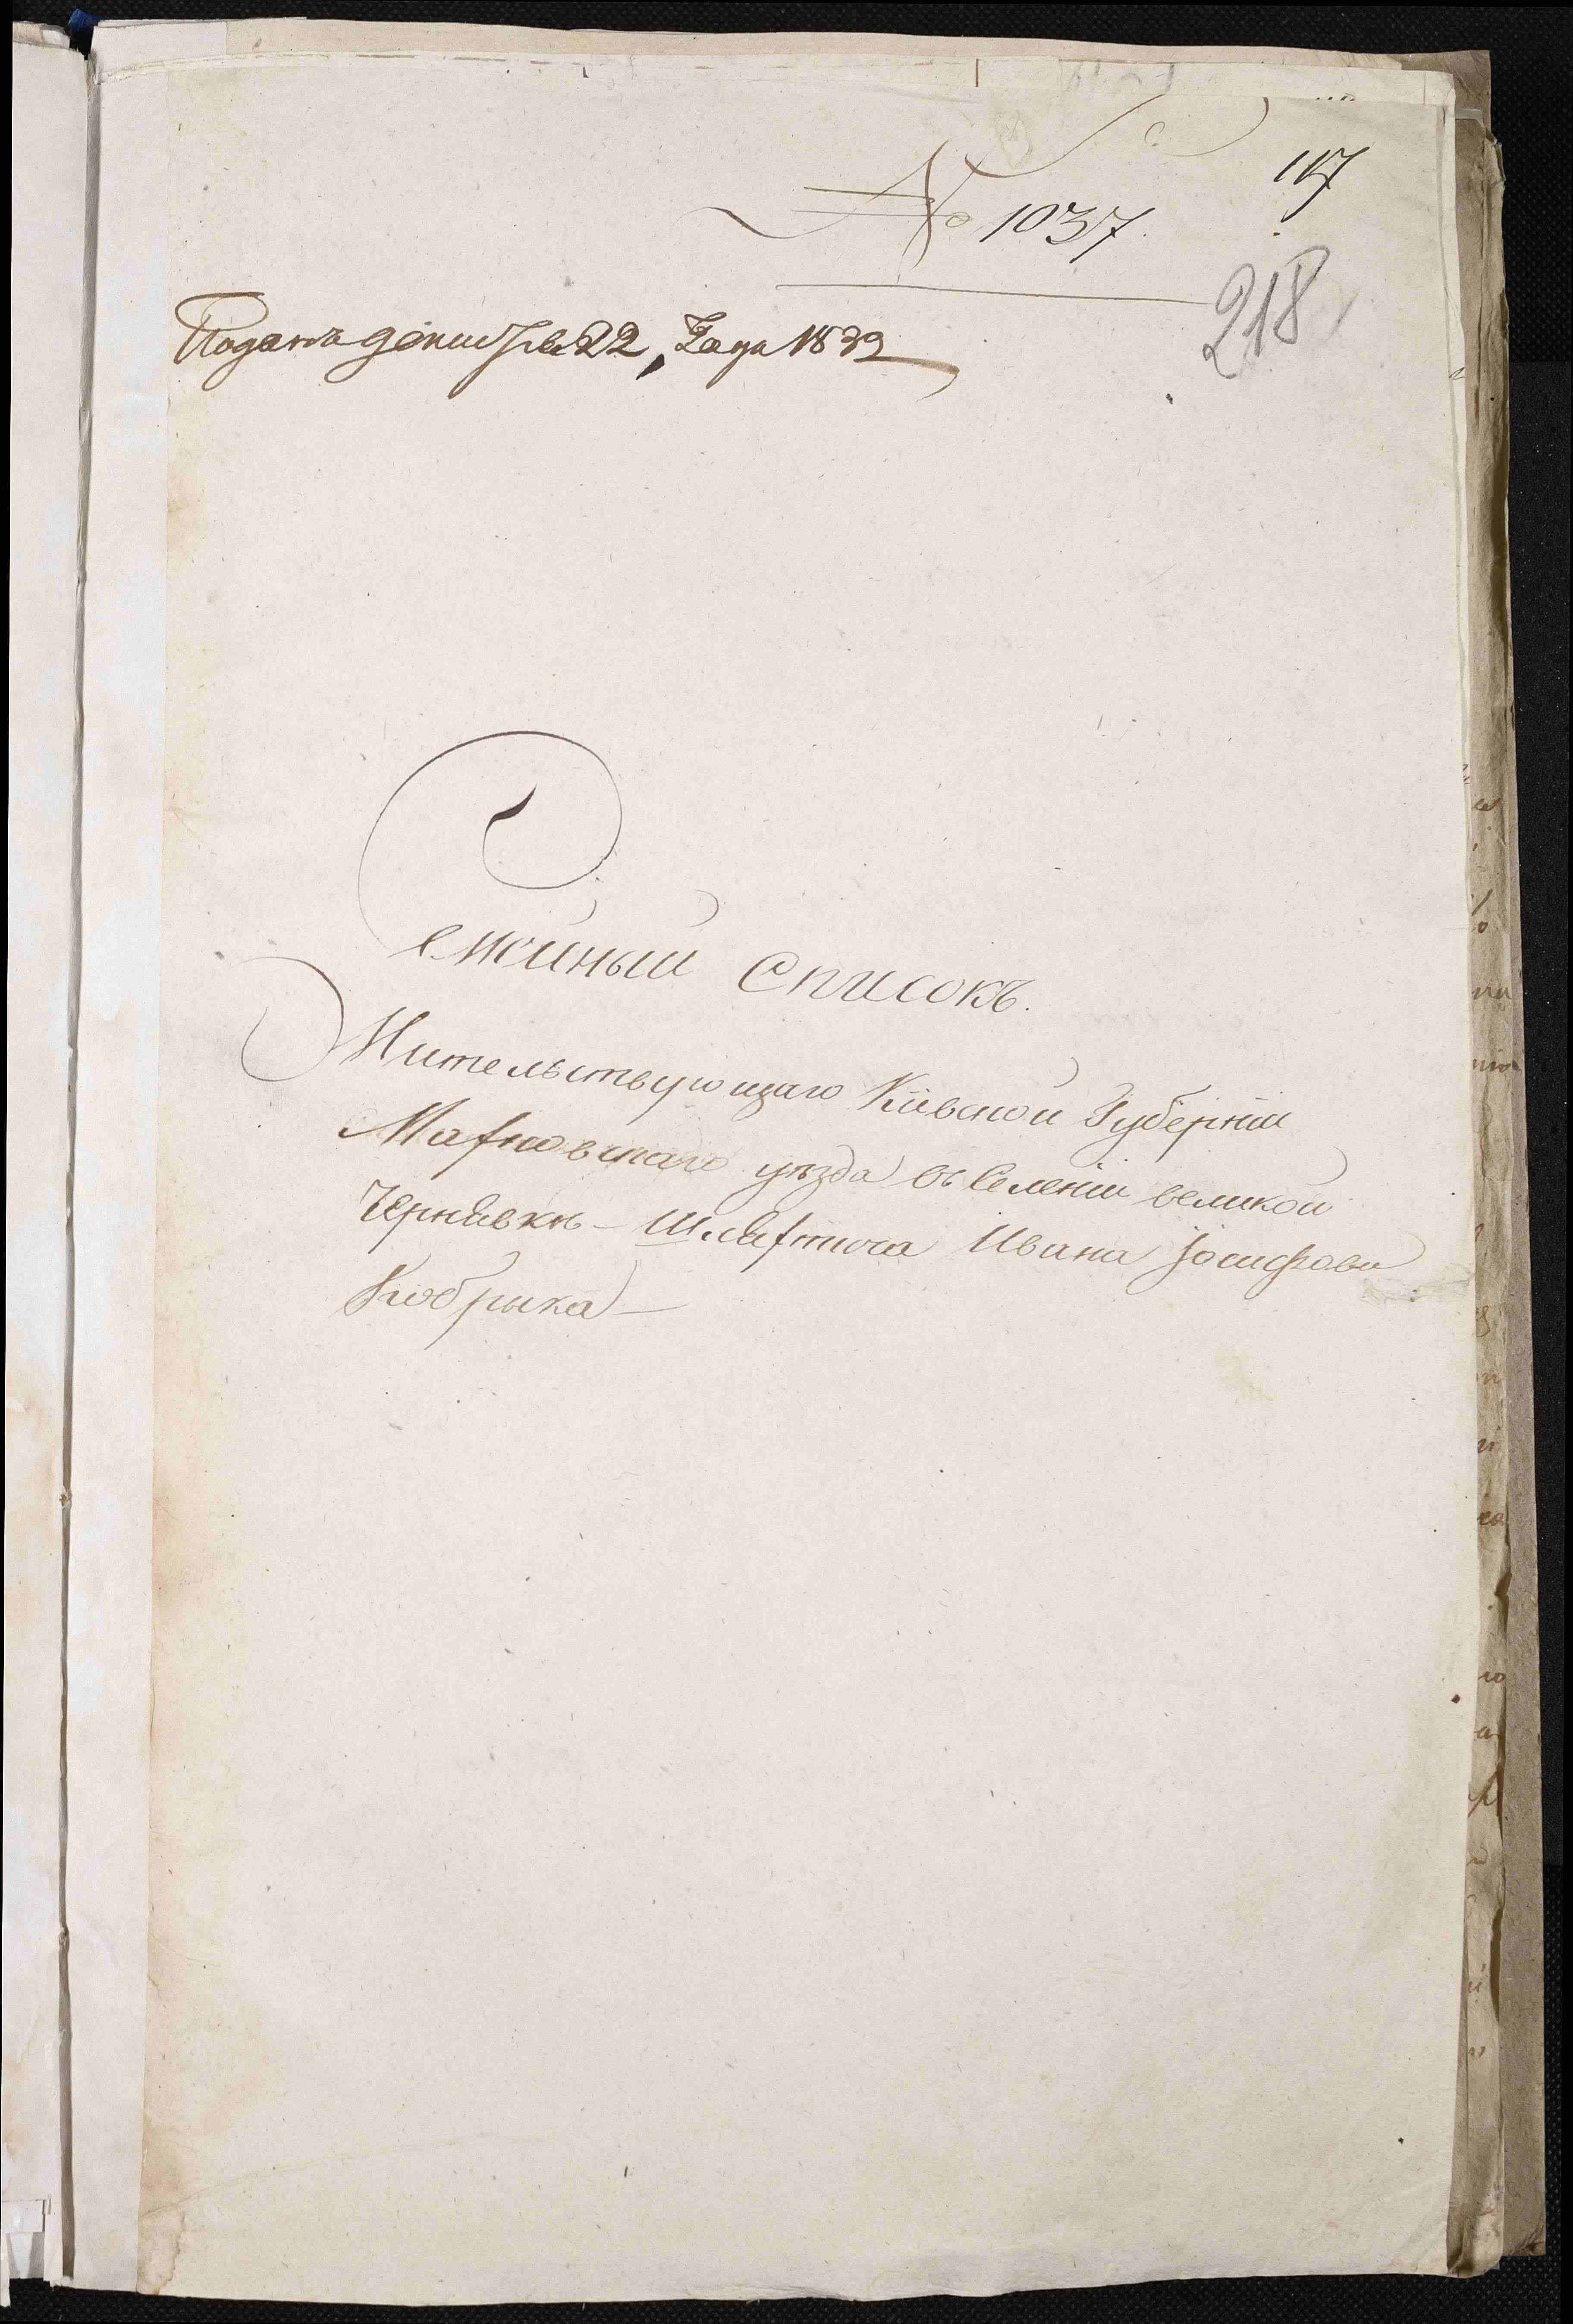 117
№ 1037.
218
Поданъ декабря 22, Года 1839
Семейный Списокъ.
Жительствующаго Кіевской Губерніи
Махновскаго уезда въ Селеніи великой
Чернявке - Шляхтича Ивана Іосифова
Кобрыка -